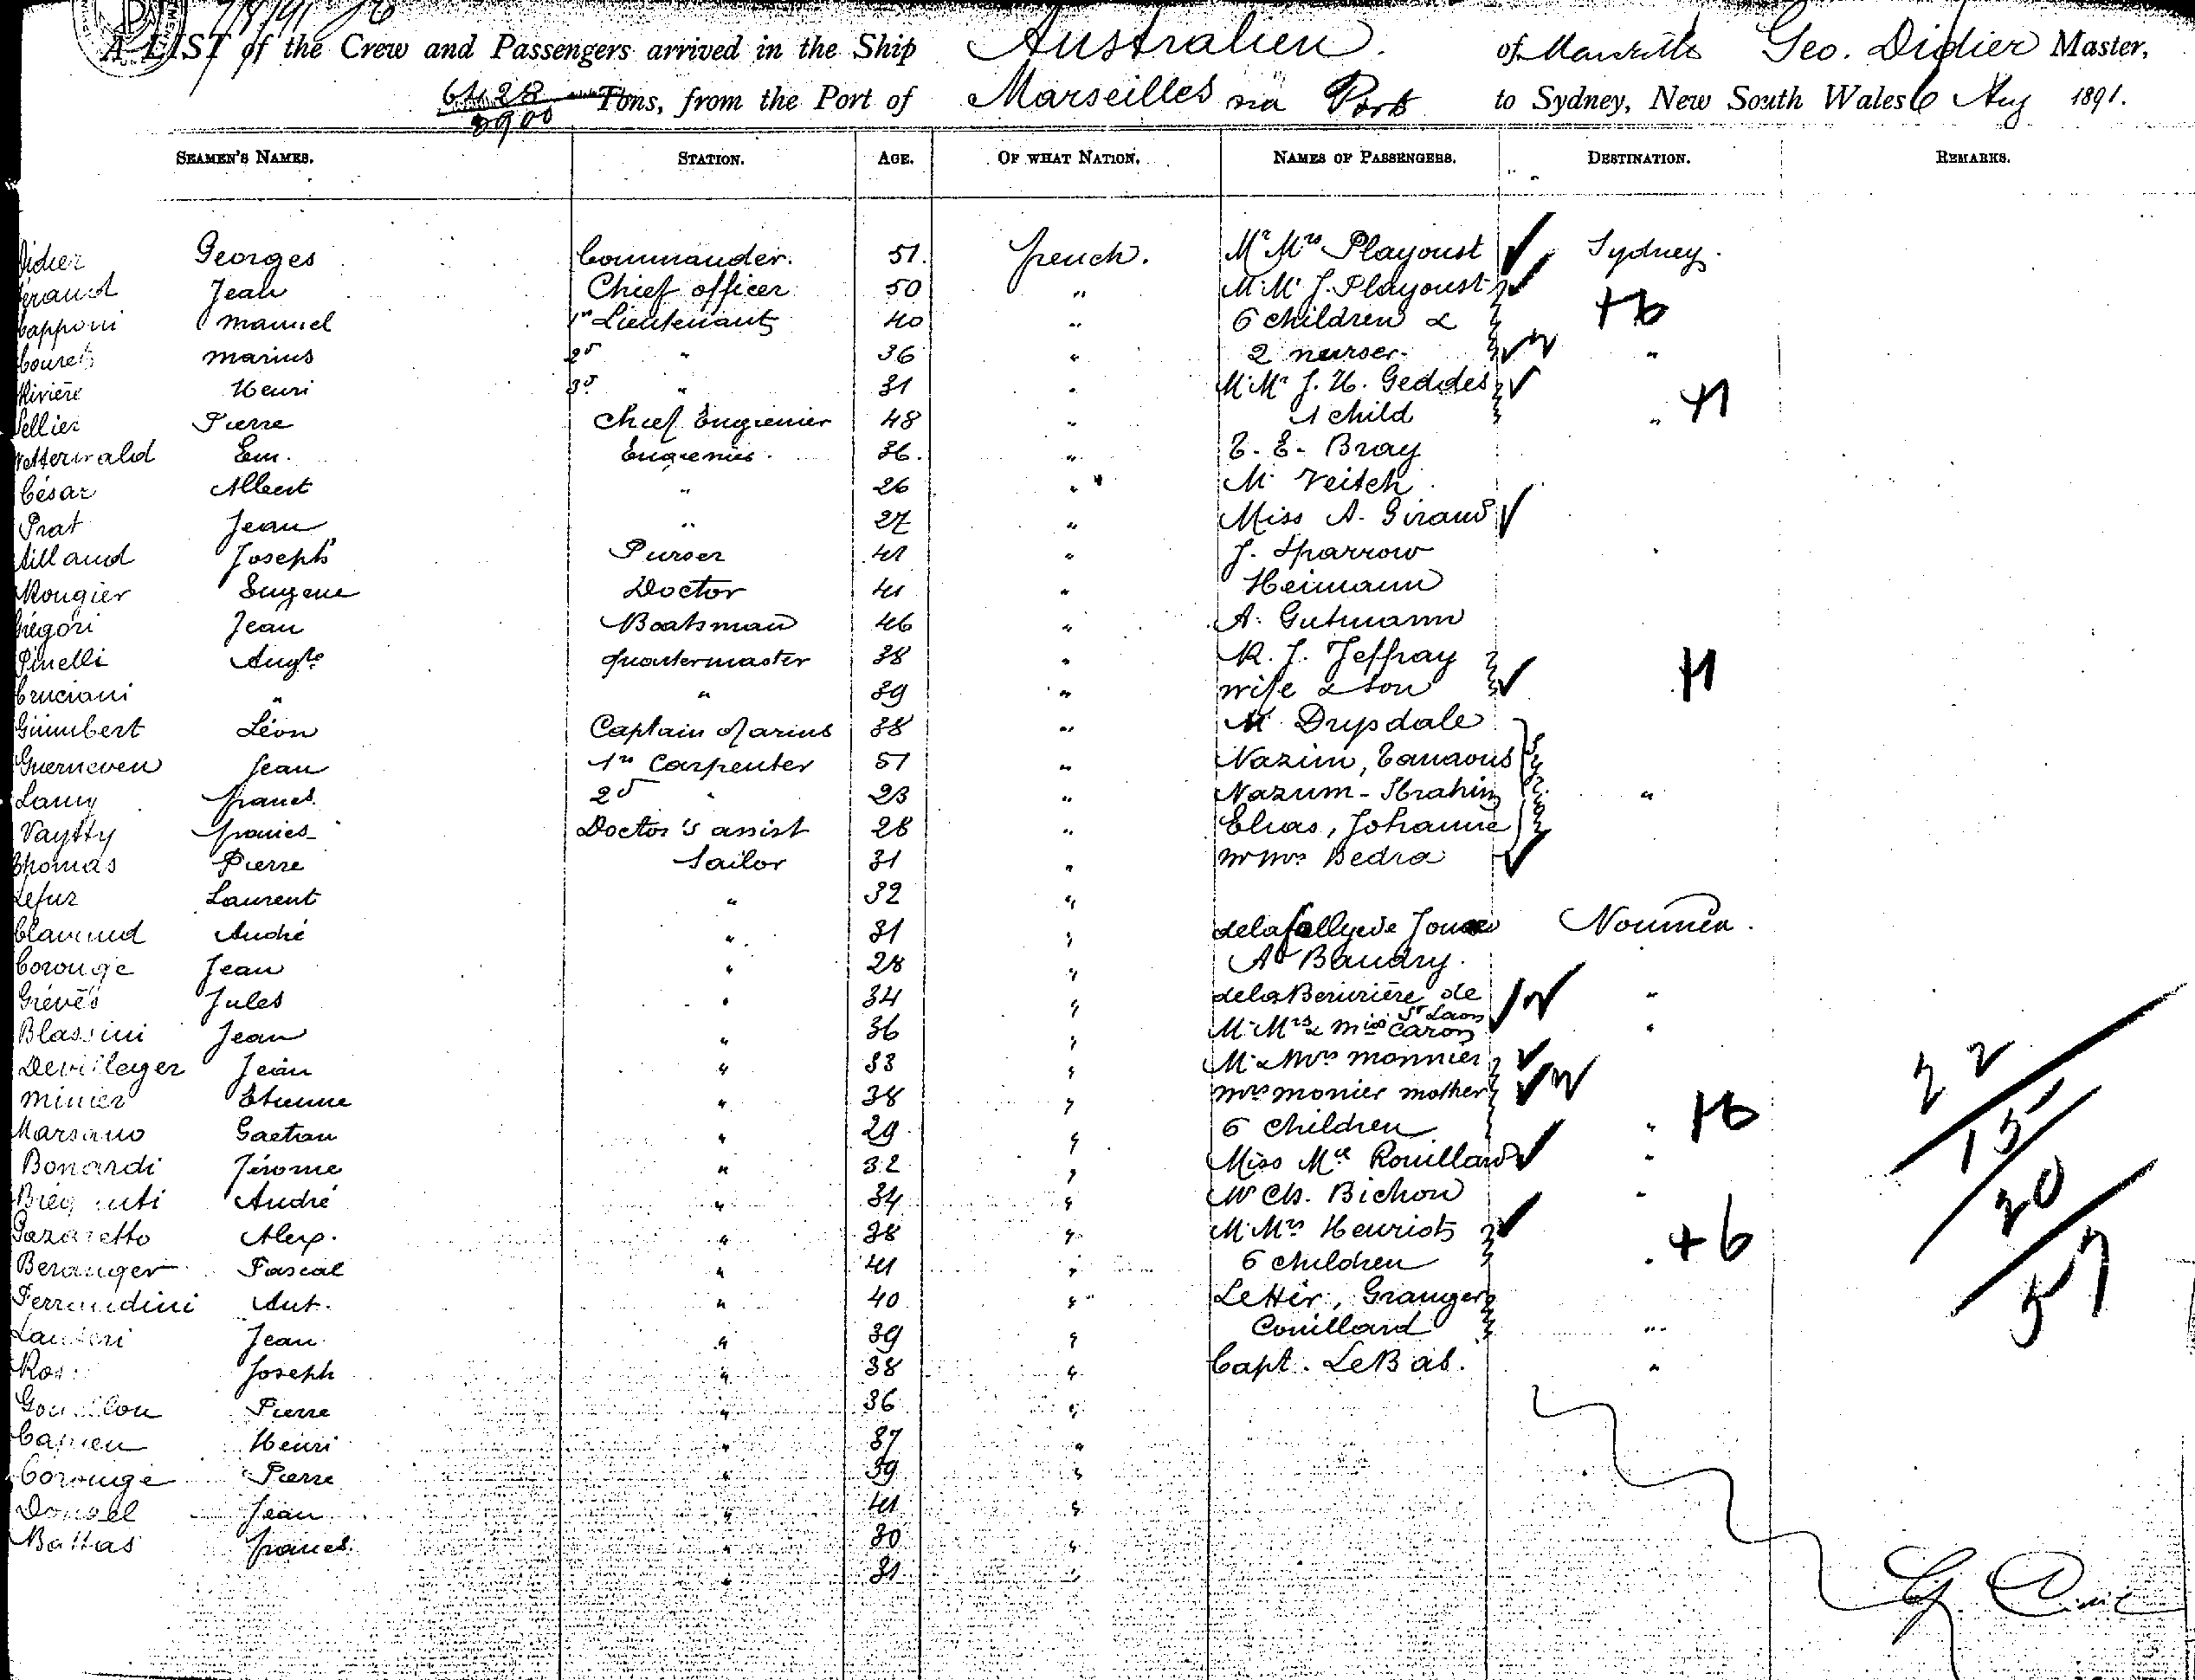 7/8/91
A LIST of the Crew and Passengers arrived in the Ship Australien. of Geo. Didier Master,
6428 Tons, from the Port of Marseilles via Ports to Sydney, New South Wales 6 Aug 1891.
3900
SEAMEN'S NAMES. STATION. AGE. OF WHAT NATION. NAMES OF PASSENGERS. DESTINATION. REMARKS.
Didier Georges Commander. 51. french. Mr Mrs Playoust Sydney.
Jean Chief officer 50 " M. Mr J. Playoust
Capponi Manuel 1st Lieutenant 40 " 6 children & +6
Couret Marius 2d " 36 " 2 nurses. "
Rivière Henri 3d " 31 " M. Mr J. H. Geddes
Pellier Pierre Chief Engenier 48 " 1 child " +1
Em. Engenier. 36. " E. E. Bray
César Albert " 26 " M. Veitch
Prat Jean " 27 " Miss A. Giraud
Aillaud Joseph Purser 41 " J. Sparrow
Rougier Eugene Doctor 41 " Heimann
Grégori Jean Boatsman 46 " A. Gutmann
Pinelli Augte quartermaster 38 " R. J. Jeffray
Cruciani " " 39 " wife & son +1
Guimbert Léon Captain of arms 38 " M. Drysdale
Guerneven Jean 1st Carpenter 51 " Nazim, Tanaous
Lamy francs. 2d " 23 " Nazum - Ibrahim "
Vaytty francs Doctor's assist 28 " Elias, Johanne
Thomas Pierre Sailor 31 " Mr Mrs Bedra
Lefur Laurent " 32 "
Clavaud André " 31 " Noumea.
Corouge Jean " 28 " A. Baudry.
Grévès Jules " 34 " de la Berurière de "
St Laon
Blassini Jean " 36 " M. Mrs & Miss Caron "
Devillager Jean " 33 " M. & Mrs Monnier
Minier Etienne " 38 " Mrs Monier mother
Marsano Gaetan " 29 " 6 children " +6
Bonardi Jérome " 32 " Miss Mce Rouillard "
André " 34 " M Ch. Bichon "
Pazaretto Alex. " 38 " M. Mrs Henriot
Beranger Pascal " 41 " 6 children " +6
Ferrandini Ant. " 40 " LeHir, Granger
Jean " 39 " Couillard "
Joseph " 38 " Capt. LeBas. "
Pierre " 36 "
Henri " 37 "
Corouge Pierre " 39 "
Jean " 41 "
Battas francs. " 30 "
" 31 "
22
15
20
57